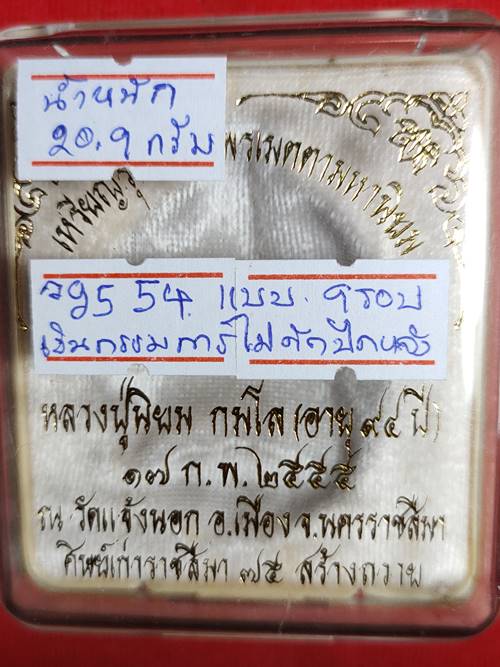 น้ำหนัก
20.9 กรัม
เหรียญ พรเมตตามหานิยม
54 แบบ 9 รอบ
เงินกรรมการ ไม่ตัดปีกหลัง
หลวงปู่นิยม กมโล (อายุ ๙๔ ปี)
๑๗ ก.พ. ๒๕๕๕
ณ วัดแจ้งนอก อ.เมือง จ.นครราชสีมา
ศิษย์เก่าราชสีมา ๗๕ สร้างถวาย